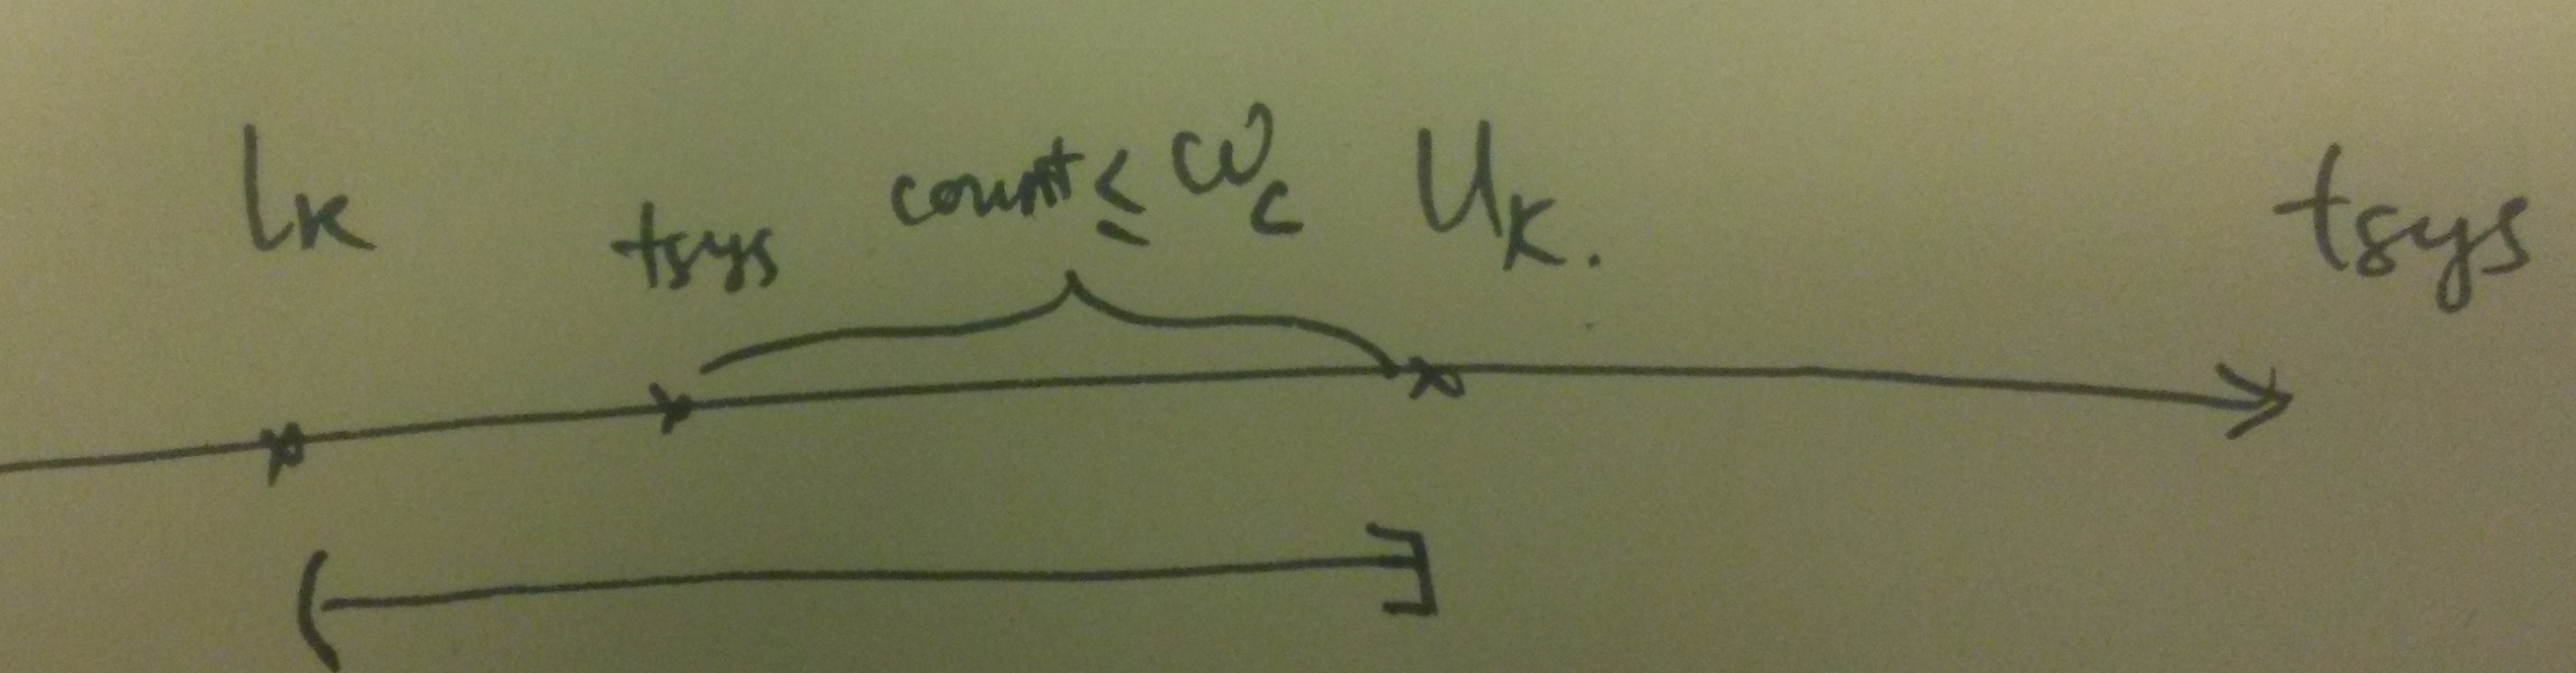 lk
tsys
count ≤ ωc
Uk.
tsys